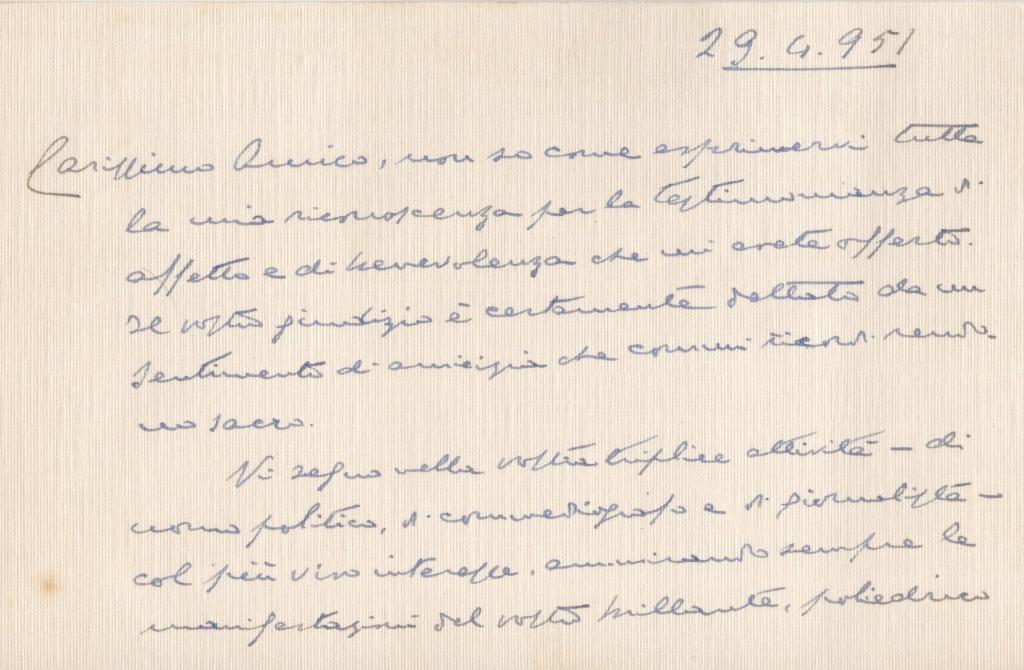 29.4.951
Carissimo Amico, non so come esprimervi tutta
la mia riconoscenza per la testimonianza di
affetto e di benevolenza che mi avete offerto.
Il vostro giudizio è certamente dettato da un
sentimento di amicizia che comuni ricordi rendo-
no sacro.
Vi seguo nella vostra triplice attività - di
uomo politico, di commediografo e di giornalista -
col più vivo interesse, ammirando sempre le
manifestazioni del vostro brillante, poliedrico